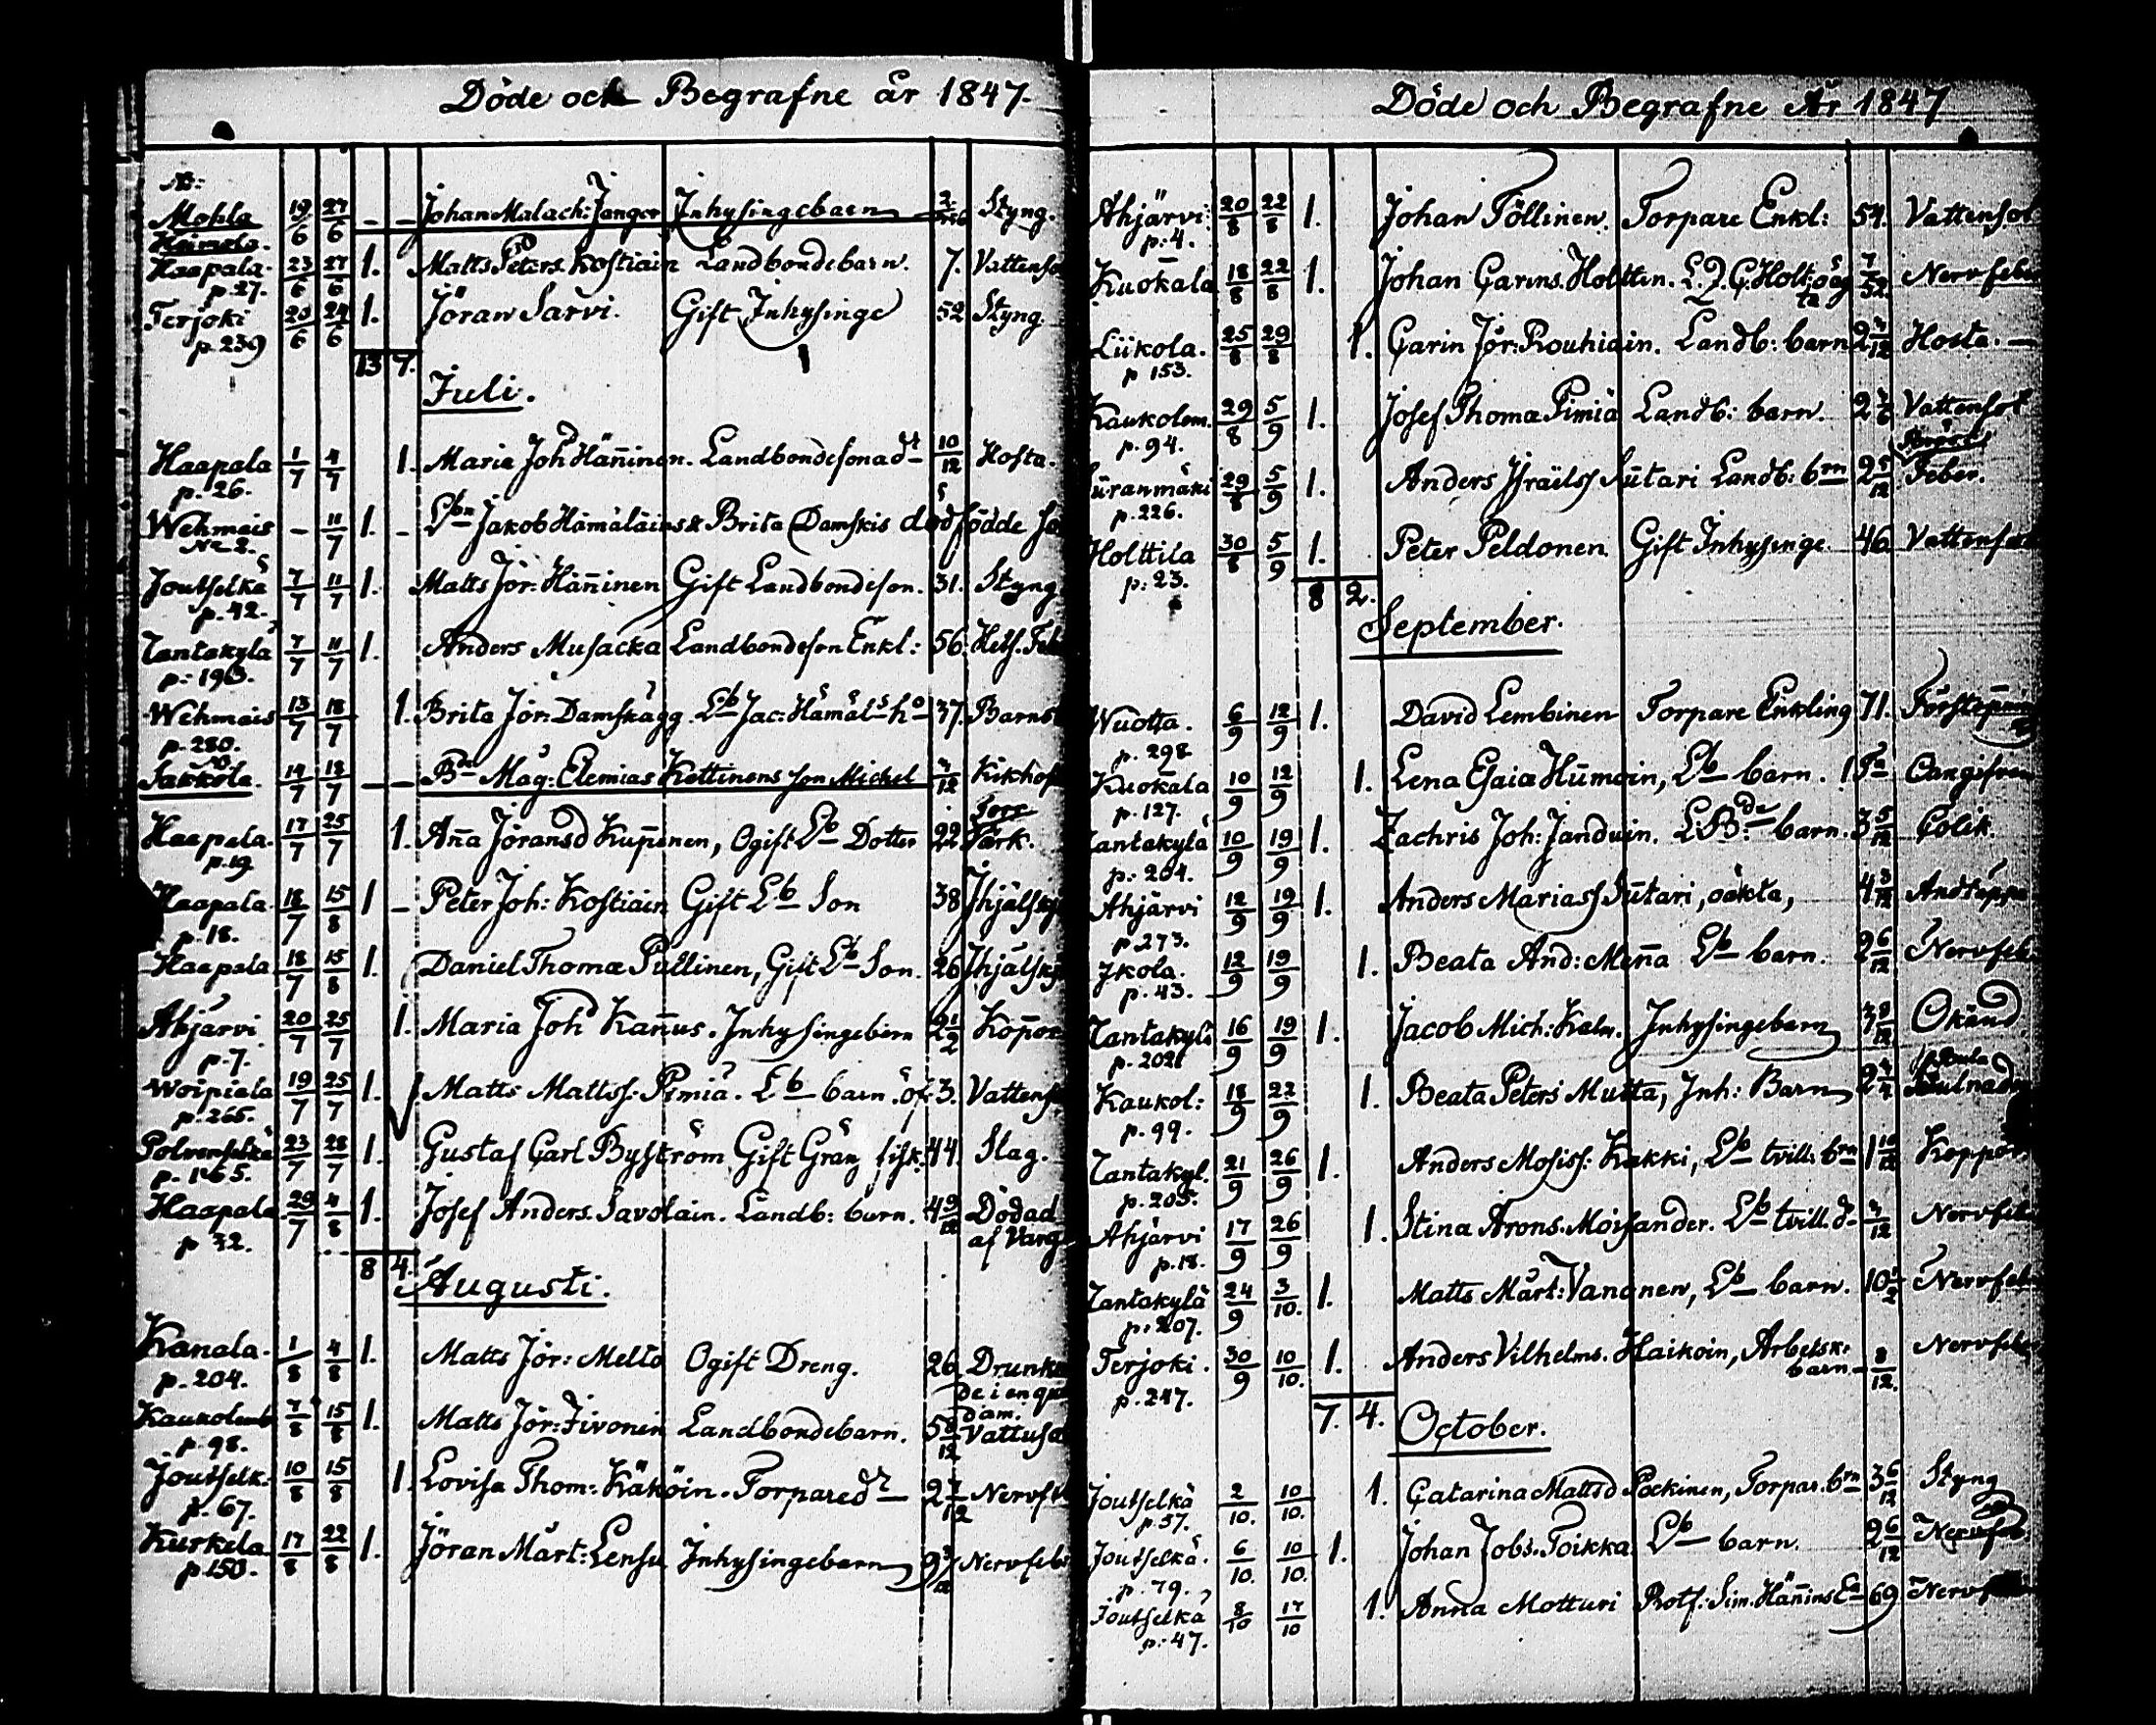 Döde och Begrafne år 1847.
No:
Mohla 19/6 27/6 - - Johan Malach: Janger Inhysingebarn 2/ Styng.
Heimola.
Haapala. 23/6 27/6 1. Matts Peters. Kostiain Landbondebarn. 7. Vattenso
p. 27.
Terjoki 20/6 24/6 1. Jöran Sarvi. Gift Inhysinge 52 Styng
p. 239
13 7.
Juli.
Haapala 1/7 4/7 1. Maria Johd Häninen. Landbondesonadr 10/12 Hosta.
p. 26.
Wehmais - 11/7 1. - Lbn Jakob Hämäläins & Brita Damskis dödfödde
No 2.
Joutselkä 7/7 11/7 1. Matts Jör: Häninen Gift Landbondeson. 31. Styng
p. 42.
Tantakylä 7/7 11/7 1. Anders Musacka Landbondeson Enkl: 56. Hets. Feb
p. 193.
Wehmais 13/7 18/7 1. Brita Jör: Damskägg Lb Jac: Hämäls ho 37. Barns
p. 280.
Sakkola. 14/7 18/7 - - Bde Mag: Elemias Kettinens son Michel 4/12 Kikhos
Haapala. 17/7 25/7 1. Aña Jöransd Kupinen, Ogift Lb Dotter 22 Torrvärk.
p. 19
Haapala. 18/7 15/8 1 - Peter Joh: Kostiain Gift Lb Son 38 Ihjälsk
p. 18.
Haapala 18/7 15/8 1. Daniel Thomæ Pullinen, Gift Lb Son. 26 Ihjälsk
Ahjärvi 20/7 25/7 1. Maria Johd Kañus. Inhysingebarn 2 1/2 Kopor
p. 7.
Woipiala 19/7 25/7 1. Matts Mattss: Pimiä. Lb barn. 3. Vattens
p. 265.
Polvenselkä 23/7 28/7 1. Gustaf Carl Byström Gift Gräns fisk. 44. Slag.
p. 165.
Haapala 29/7 4/8 1. Josef Anders. Savolain. Landb: barn. 4 9/12 Dödad
p 32. af Varg
8 4.
Augusti.
Kanala. 1/8 4/8 1. Matts Jör: Melto Ogift Dreng. 26. Drunkna
p. 204. de i en qvarn
dam.
Kaukolemb 7/8 15/8 1. Matts Jör: Iivonen Landbondebarn. 5 8/12 Vattusot
p. 98.
Joutselk: 10/8 15/8 1. Lovisa Thom: Käköin. Torparedr 2 7/12 Nervf
p. 67.
Kurkela 17/8 22/8 1. Jöran Mårt: Lensu Inhysingebarn 9 Nervfeb
p 150.
Döde och Begrafne År 1847
Ahjärvi: 20/8 22/8 1. Johan Töllinen. Torpare Enkl: 54. Vattensot
p: 4.
Kuokala 18/8 22/8 1. Johan Carins. Holttin. 7/52 Nervfeber
Liikola. 25/8 29/8 1. Carin Jör: Rouhiain. Landb: barn 2 4/12 Hosta.
p 153.
Kaukolem. 29/8 5/9 1. Josef Thomæ Pimiä Landb: barn. 2 Vattensot
p. 94.
Suuranmäki 29/8 5/9 1. Anders Israelss Sutari Landb: brn 2 5/12 Feber.
p. 226.
Holttila 30/8 5/9 1. Peter Peldonen Gift Inhysinge. 46 Vattensot
p: 23.
8 2.
September.
Wuotta. 6/9 12/9 1. David Lembinen Torpare Enkling 71. Förstopning
p. 298
Kuokala 10/9 12/9 1. Lena Esaiæ Humoin, Lb barn. Oangifven
p. 127.
Tantakylä 10/9 19/9 1. Zachris Joh: Janduin. LBde barn. 3 5/12 Colik.
p: 204.
Ahjärvi 12/9 19/9 1. Anders Mariass Sutari, oäkta, 4 3/12 Andtäppa
p 273.
Ikola. 12/9 19/9 1. Beata And: Meña Lb barn. 2 6/12 Nervfeb.
p. 43.
Tantakylä 16/9 19/9 1. Jacob Mich: Kalm. Inhysingebarn 8/12 Okänd
p. 202
Kaukol: 18/9 22/9 1. Beata Peters Mutta, Inh: Barn 2
p. 99.
Tantakyl. 21/9 26/9 1. Anders Mosiss: Kukki, Lb tvill: brn 1 10/12 Koppor
p. 205.
Ahjärvi 17/9 26/9 1. Stina Arons. Moisander. Lb tvill. d. 4/12 Nervfeb
p. 18.
Tantakylä 24/9 3/10. 1. Matts Mårt: Vanonen, Lb barn. 10 1/2 Nervfeb
p. 207.
Terjoki. 30/9 10/10. 1. Anders Vilhelms. Haikoin, Arbetsk: barn 8/12. Nervfeb
p. 247.
7. 4.
October.
Joutselkä 2/10. 10/10. 1. Catarina Mattsd Pockinen, Torpar. brn 3 6/12 Styng
p. 57.
Joutselkä. 6/10. 10/10. 1. Johan Jobs. Toikka. Lb barn. 2 6/12 Nervfeb.
p. 79.
Joutselkä 8/10 17/10 1. Anna Motturi Rotf: Sim. Häñins Ea 69 Nerv
p. 47.